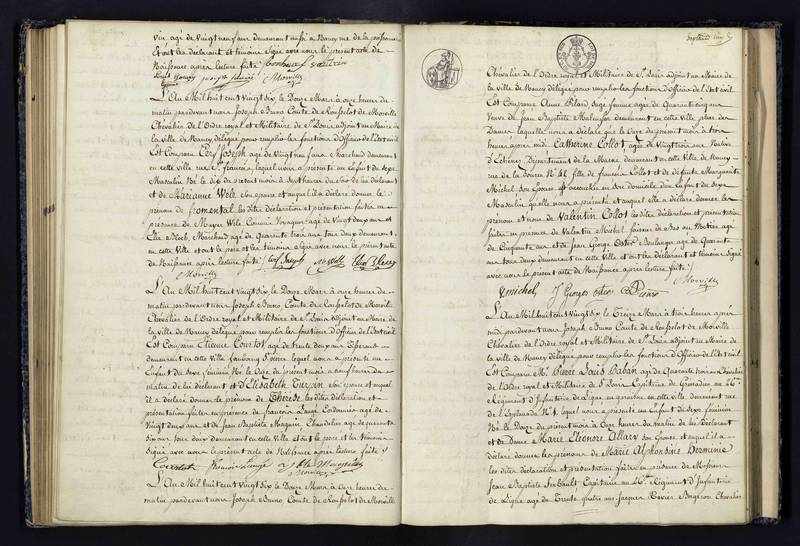 an agé de vingt neuf ans demeurant aussi à Nancy rue de la poissonnerie
et ont les déclarant et témoins signé avec nous le présent acte de
Naissance après lecture faite
L'An Mil huit cent vingt six, le Douze Mars à onze heures du
matin pardevant nous Joseph Bruno Comte de Rousselot de Morville
Chevalier de l'Ordre royal et Militaire de St Louis adjoint au Maire de
la ville de Nancy délégué pour remplir les fonctions d'Officier de l'Etat civil
Est Comparu Cerf Joseph agé de vingt neuf ans Marchand demeurant
en cette ville rue St françois, lequel nous a présenté un Enfant du sexe
Masculin Né le dix du présent mois à sept heures du soir de lui déclarant
et de Marianne Wele son épouse et auquel il a déclaré donner le
prénom de fromental les dites déclaration et présentation faites en
présence de Mayer Wele Commis Voyageur agé de Vingt deux ans et
Elie Bloch, Marchand agé de quarante trois ans tous deux demeurant
en cette Ville et ont le père et les témoins signé avec nous le présent acte
de Naissance après lecture faite
Morville
L'An Mil huit cent Vingt Six le Douze Mars à onze heures du
matin pardevant nous Joseph Bruno, Comte de Rousselot de Morville
Chevalier de l'Ordre royal et Militaire de St Louis adjoint au Maire de
la ville de Nancy délégué pour remplir les fonctions d'Officier de l'Etat civil
Est Comparu Etienne Courtot agé de trente deux ans
demeurant en cette Ville faubourg St pierre lequel nous a présenté un
Enfant du sexe féminin Né le Dix du présent mois à neuf heures du
matin de lui déclarant et d'Elisabeth Turpin son épouse et auquel
il a déclaré donner le prénom de Thérèse les dites déclaration et
présentation faites en présence de françois Cordonnier agé de
Vingt deux ans et de Jean Baptiste Marquis Chandelier agé de quarante
six ans tous deux demeurant en cette Ville et ont le père et les témoins
signé avec nous le présent acte de Naissance après lecture faite
Morville
L'An Mil huit cent vingt Six le Douze Mars à onze heures du
matin pardevant nous Joseph Bruno, Comte de Rousselot de Morville
Chevalier de l'Ordre royal et Militaire de St Louis adjoint au Maire de
la ville de Nancy délégué pour remplir les fonctions d'Officier de l'Etat civil
Est Comparue Anne femme agée de Quarante cinq ans
Veuve de Jean Baptiste demeurant en cette Ville place des
Dames laquelle nous a déclaré que le Onze du présent mois à trois
heures après midi Catherine Collot agée de vingt trois ans Native
Département de la Meuse demeurant en cette Ville de Nancy
rue de la Source No 41, fille de françois Collot et de défunte Marguerite
Michel son épouse est accouchée en son domicile d'un Enfant du sexe
Masculin qu'elle nous a présenté et auquel elle a déclaré donner les
prénom et nom de Valentin Collot les dites déclaration et présentation
faites en présence de Valentin Michel faiseur de bas au Métier agé
de Cinquante ans et de Jean George Boulanger agé de Quarante
ans tous deux demeurant en cette Ville et ont la déclarant et témoins signé
avec nous le présent acte de Naissance après lecture faite
Morville
V michel
L'An Mil huit cent Vingt Six le Treize Mars à trois heures après
midi pardevant nous Joseph Bruno Comte de Rousselot de Morville
Chevalier de l'Ordre royal et Militaire de St Louis adjoint au Maire de
la ville de Nancy délégué pour remplir les fonctions d'Officier de l'Etat civil
Est Comparu Mr Pierre Louis Caban agé de quarante trois ans Chevalier
de l'Ordre royal et Militaire de St Louis Capitaine de Grenadiers au 46e
Régiment d'Infanterie de Ligne en garnison en cette Ville demeurant rue
de l'Esplanade No 1. lequel nous a présenté un Enfant du sexe féminin
Né le Douze du présent mois à onze heures du matin de lui déclarant
et de Dame Marie Eléonore Allary son Epouse et auquel il a
déclaré donner les prénoms de Marie Alphonsine Herminie
les dites déclaration et présentation faites en présence de Messieurs
Jean Baptiste Capitaine au 46e Régiment d'Infanterie
de Ligne agé de Trente quatre ans Jacques Xavier Chevalier